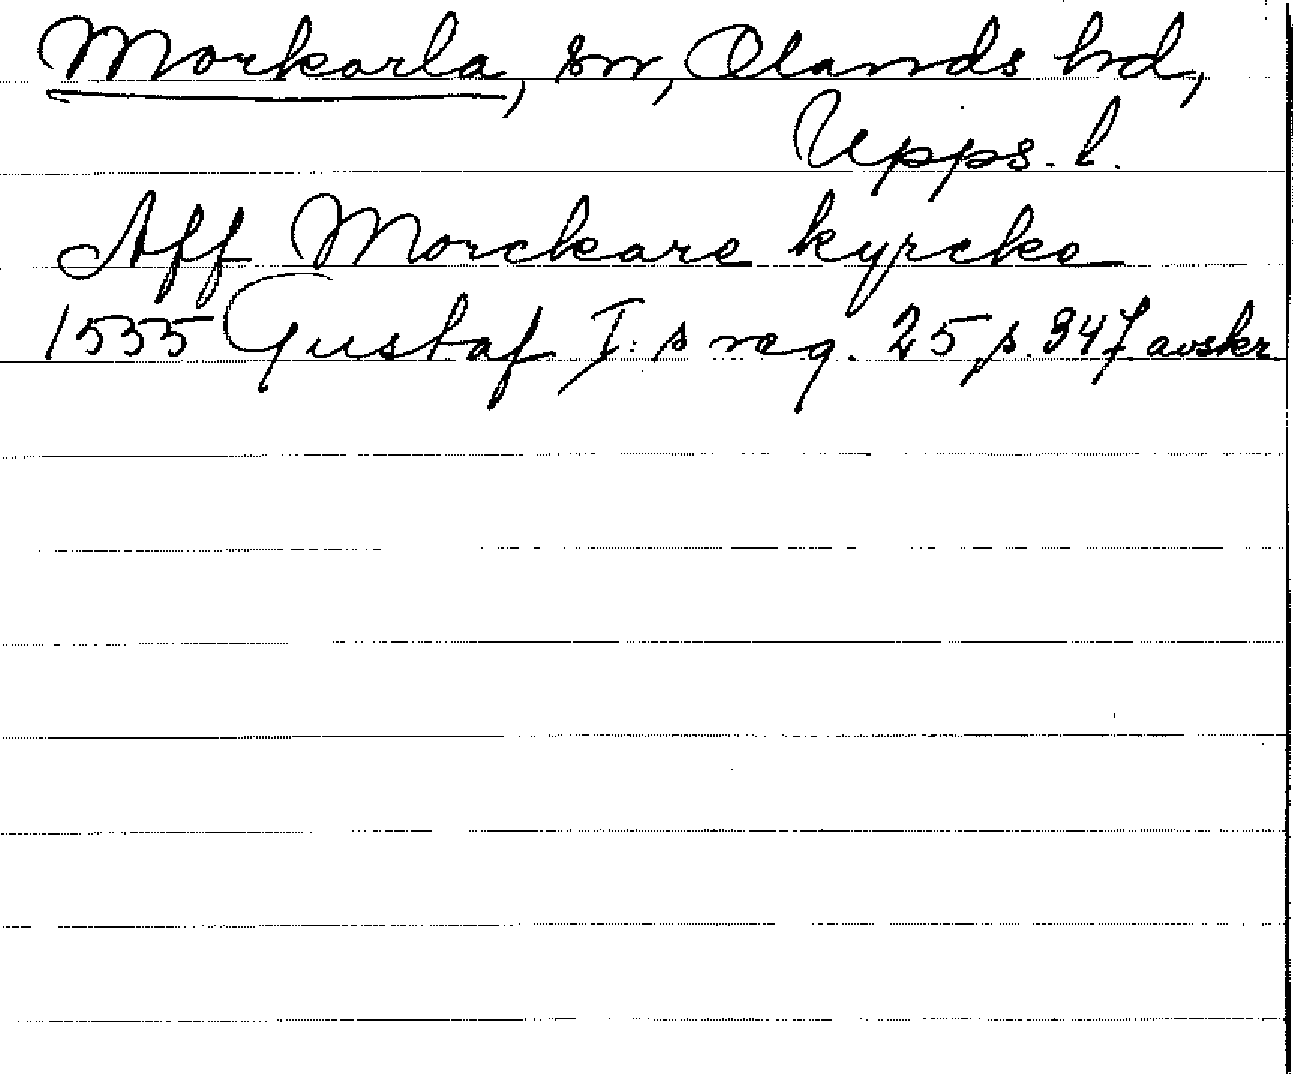 Morkarla, sn, Olands hd,
Upps. l.
Aff Morckare kyrcke
1535 Gustaf I:s reg. 25 p. 347 avskr.